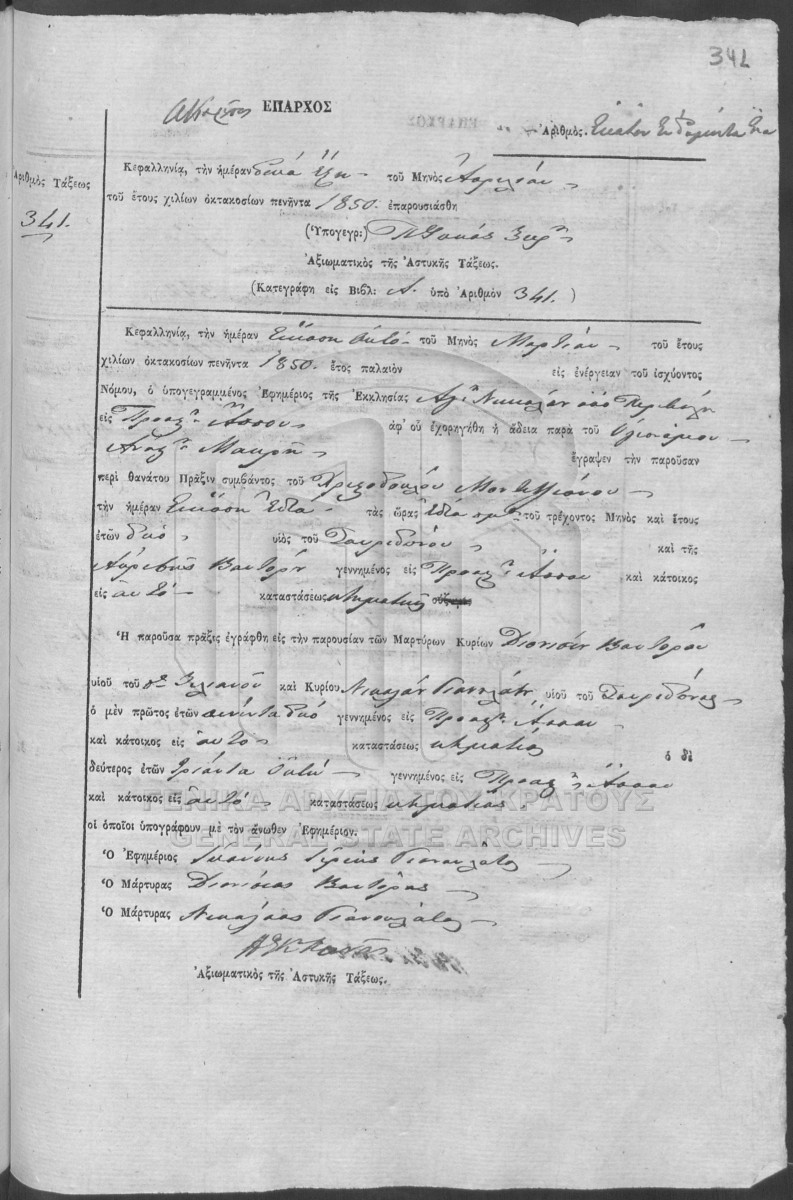 341
ΕΠΑΡΧΟΣ
Ἀριθμὸς. Ἑκατὸν Ἑβδομῆντα Ἕνα
Ἀριθμὸς Τάξεως
341.
Κεφαλληνίᾳ, τὴν ἡμέραν δέκα ἕξη τοῦ Μηνὸς Ἀπριλίου
τοῦ ἔτους χιλίων ὀκτακοσίων πενῆντα 1850. ἐπαρουσιάσθη
(Ὑπογεγρ:)
Ἀξιωματικὸς τῆς Ἀστυκῆς Τάξεως.
(Κατεγράφη εἰς Βιβλ: Α. ὑπὸ Ἀριθμὸν 341.)
Κεφαλληνίᾳ, τὴν ἡμέραν Εἴκοση ὀκτὸ τοῦ Μηνὸς Μαρτίου τοῦ ἔτους
χιλίων ὀκτακοσίων πενῆντα 1850. ἔτος παλαιὸν εἰς ἐνέργειαν τοῦ ἰσχύοντος
Νόμου, ὁ ὑπογεγραμμένος Ἐφημέριος τῆς Ἐκκλησίας Ἁγ: Νικολάου
εἰς Προας: Ἄσσου ἀφ' οὗ ἐχορηγήθη ἡ ἄδεια παρὰ τοῦ
Μακρῆ ἔγραψεν τὴν παροῦσαν
περὶ θανάτου Πρᾶξιν συμβάντος τοῦ Χριστοδούλου
τὴν ἡμέραν Εἴκοση ἑπτά τὰς ὥρας ἑπτὰ τοῦ τρέχοντος Μηνὸς καὶ ἔτους
ἐτῶν δυό υἱὸς τοῦ Σπυριδόνου καὶ τῆς
Βουτορη γεννημένος εἰς Προας: Ἄσσου καὶ κάτοικος
εἰς αὐτό καταστάσεως κτηματίας
Ἡ παροῦσα πρᾶξις ἐγράφθη εἰς τὴν παρουσίαν τῶν Μαρτύρων Κυρίων Διονισίου Βουτόρου
υἱοῦ τοῦ καὶ Κυρίου Νικολάου Γιανουλάτου υἱοῦ τοῦ Σπυριδόνος
ὁ μὲν πρῶτος ἐτῶν πενῆντα δυό γεννημένος εἰς Προας: Ἄσσου
καὶ κάτοικος εἰς αὐτό καταστάσεως κτηματίας ὁ δὲ
δεύτερος ἐτῶν τριάντα ὀκτώ γεννημένος εἰς Προας: Ἄσσου
καὶ κάτοικος εἰς αὐτό καταστάσεως κτηματίας
οἱ ὁποῖοι ὑπογράφουν μὲ τὸν ἄνωθεν Ἐφημέριον.
Ὁ Ἐφημέριος Ἰωάννης Ἱερεὺς Γιανουλάτος
Ὁ Μάρτυρας Διονύσιος Βουτόρος
Ὁ Μάρτυρας Νικολαος Γιανουλάτος
Ἀξιωματικὸς τῆς Ἀστυκῆς Τάξεως.
ΓΕΝΙΚΑ ΑΡΧΕΙΑ ΤΟΥ ΚΡΑΤΟΥΣ
GENERAL STATE ARCHIVES